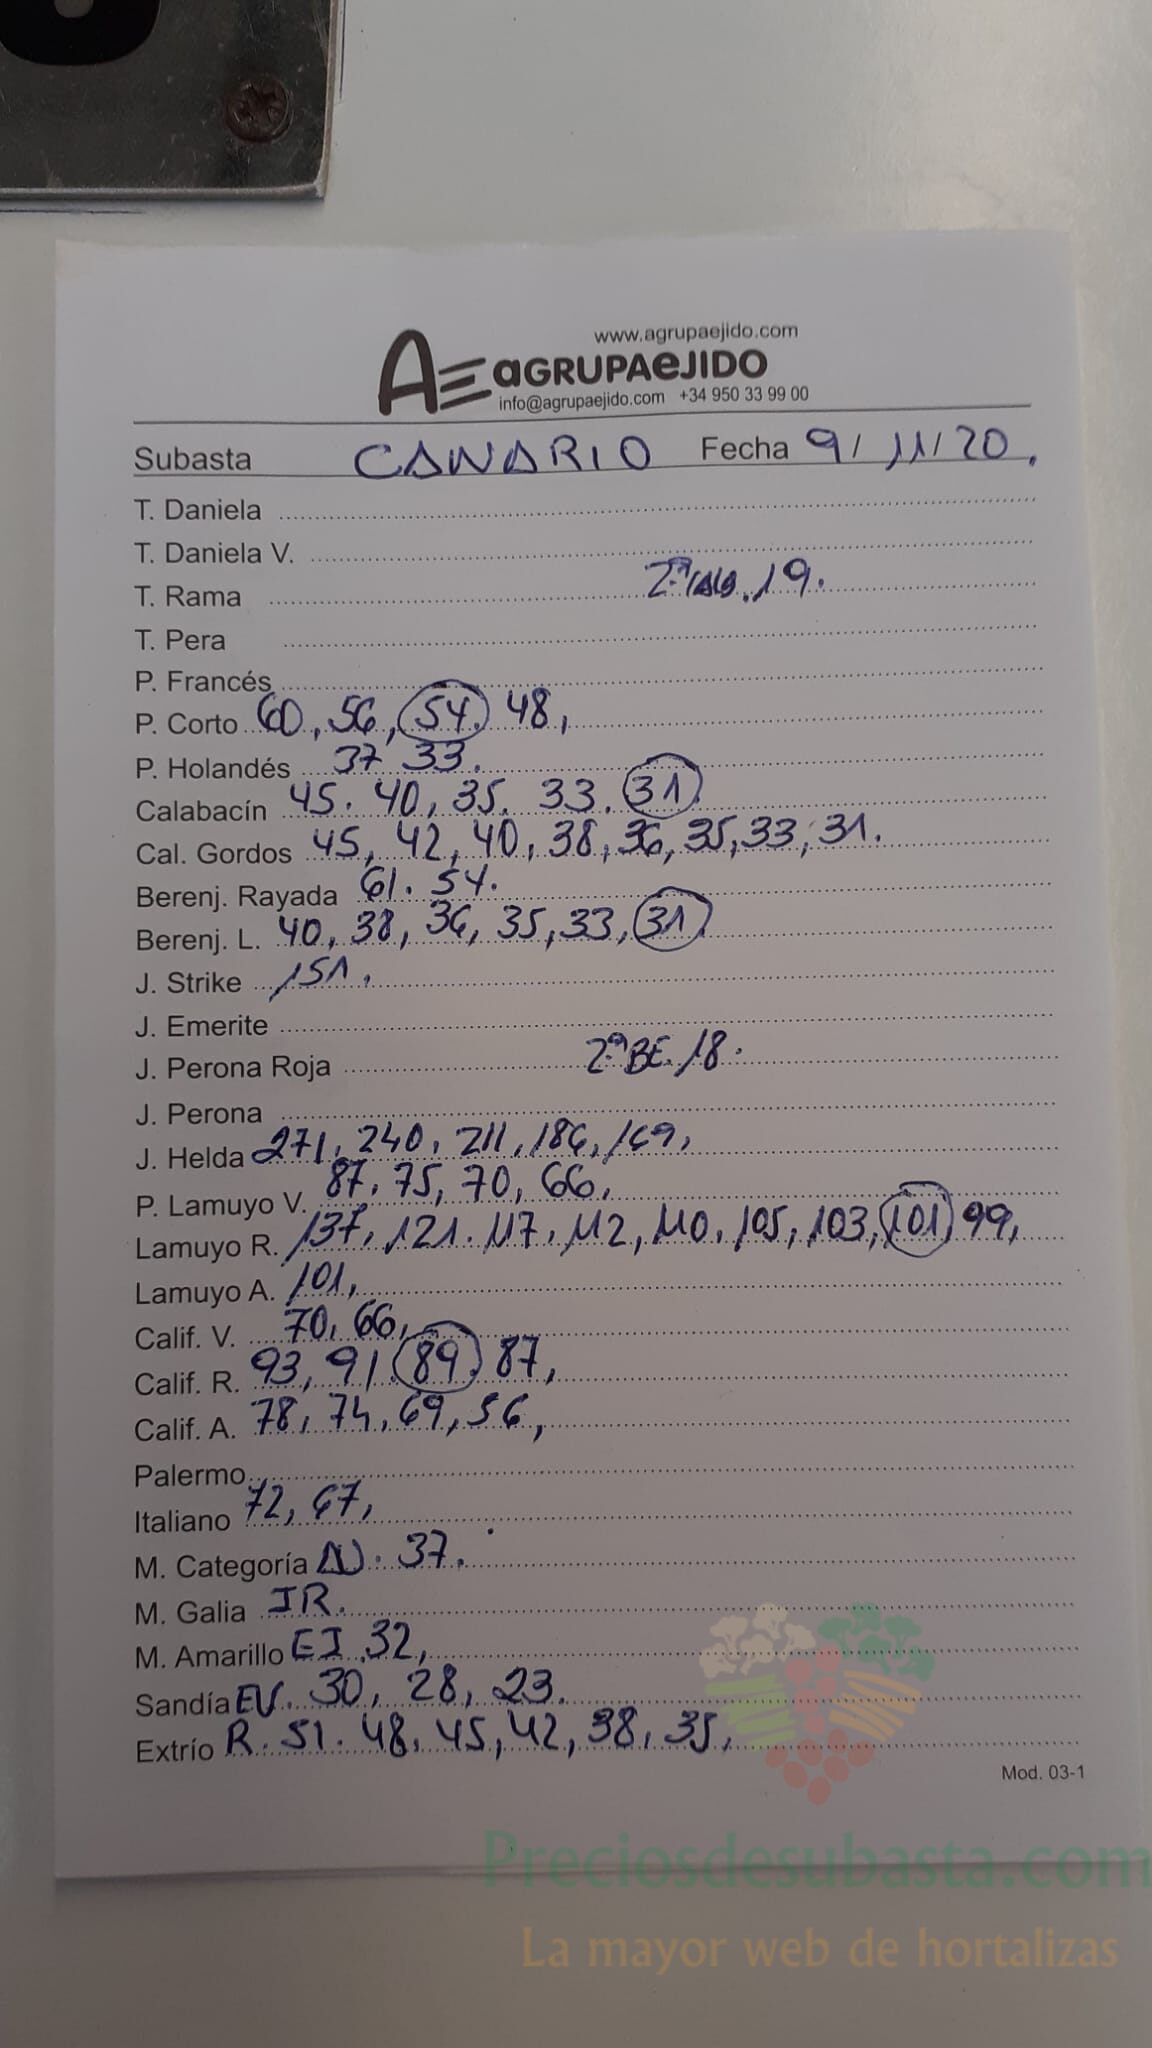 www.agrupaejido.com
AE aGRUPAeJIDO
info@agrupaejido.com +34 950 33 99 00
Subasta CANARIO Fecha 9/11/20.
T. Daniela
T. Daniela V.
T. Rama 2ª 19.
T. Pera
P. Francés
P. Corto 60, 56, 54. 48,
P. Holandés 37 33.
Calabacín 45. 40, 35. 33. 31.
Cal. Gordos 45, 42, 40, 38, 36, 35, 33, 31.
Berenj. Rayada 61. 54.
Berenj. L. 40, 38, 36, 35, 33, 31.
J. Strike 151.
J. Emerite
J. Perona Roja 2ª BE. 18.
J. Perona
J. Helda 271, 240, 211, 186, 169,
P. Lamuyo V. 87, 75, 70, 66,
Lamuyo R. 137, 121. 117, 112, 110, 105, 103, 101 99,
Lamuyo A. 101,
Calif. V. 70, 66,
Calif. R. 93, 91, 89. 87,
Calif. A. 78, 74, 69, 56,
Palermo
Italiano 72, 67,
M. Categoría N. 37.
M. Galia IR.
M. Amarillo EJ. 32,
Sandía EV. 30, 28, 23.
Extrío R. 51. 48, 45, 42, 38, 35,
Mod. 03-1
Preciosdesubasta.com
La mayor web de hortalizas